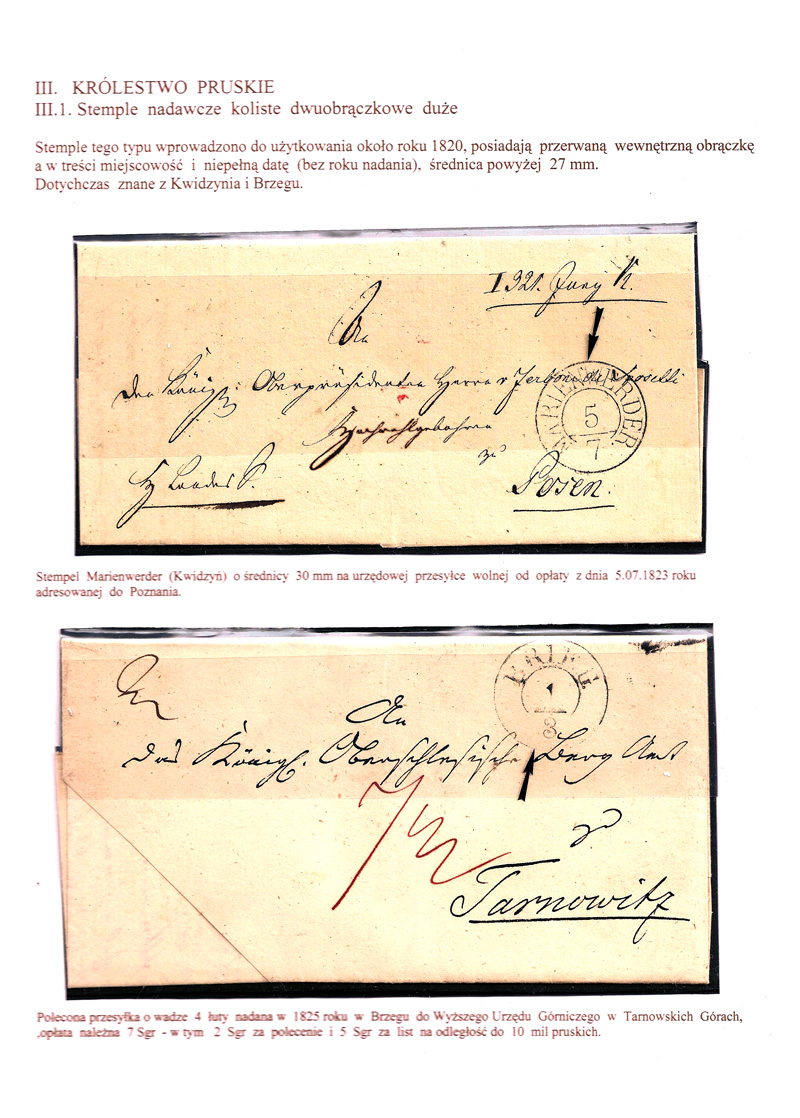 III. KRÓLESTWO PRUSKIE
III.1. Stemple nadawcze koliste dwuobrączkowe duże
Stemple tego typu wprowadzono do użytkowania około roku 1820, posiadają przerwaną wewnętrzną obrączkę
a w treści miejscowość i niepełną datę (bez roku nadania), średnica powyżej 27 mm.
Dotychczas znane z Kwidzynia i Brzegu.
I.321. Juny
An
den Königl: Oberpräsidenten Herrn v Zerboni di Sposetti
MARIENWERDER
5
7
zu
Posen.
Stempel Marienwerder (Kwidzyń) o średnicy 30 mm na urzędowej przesyłce wolnej od opłaty z dnia 5.07.1823 roku
adresowanej do Poznania.
BRIEG
1
8
An
das Königl. Oberschlesische Berg Amt
7
zu
Tarnowitz
Polecona przesyłka o wadze 4 łuty nadana w 1825 roku w Brzegu do Wyższego Urzędu Górniczego w Tarnowskich Górach,
,opłata należna 7 Sgr - w tym 2 Sgr za polecenie i 5 Sgr za list na odległość do 10 mil pruskich.